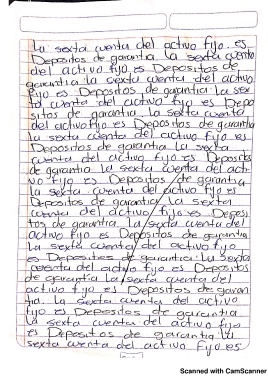 La sexta cuenta del activo fijo es
Depositos de garantia La sexta cuenta
del activo fijo es Depositos de
garantia La sexta cuenta del activo
fijo es Depositos de garantia La sex
ta cuenta del activo fijo es Depo
sitos de garantia La sexta cuenta
del activo fijo es Depositos de garantia
La sexta cuenta del activo fijo es
Depositos de garantia La sexta
cuenta del activo fijo es Depositos
de garantia La sexta cuenta del acti
vo fijo es Depositos de garantia
La sexta cuenta del activo fijo es
Depositos de garantia La sexta
cuenta del activo fijo es Deposi
tos de garantia La sexta cuenta del
activo fijo es Depositos de garantia
La sexta cuenta del activo fijo
es Depositos de garantia La sexta
cuenta del activo fijo es Depositos
de garantia La sexta cuenta del
activo fijo es Depositos de garan
tia. La sexta cuenta del activo
fijo es Depositos de garantia
La sexta cuenta del activo fijo
es Depositos de garantia La
sexta cuenta del activo Fijo es
Scanned with CamScanner